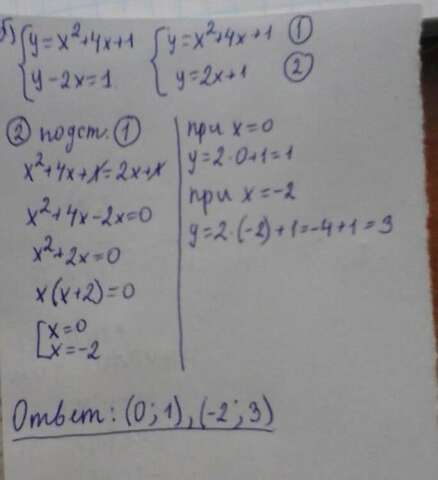 б) { y=x²+4x+1 { y=x²+4x+1 ①
y-2x=1 y=2x+1 ②
② подст. ①
x²+4x+1=2x+1
x²+4x-2x=0
x²+2x=0
x(x+2)=0
[ x=0
x=-2
при x=0
y=2·0+1=1
при x=-2
y=2·(-2)+1=-4+1=3
Ответ: (0;1),(-2;3)